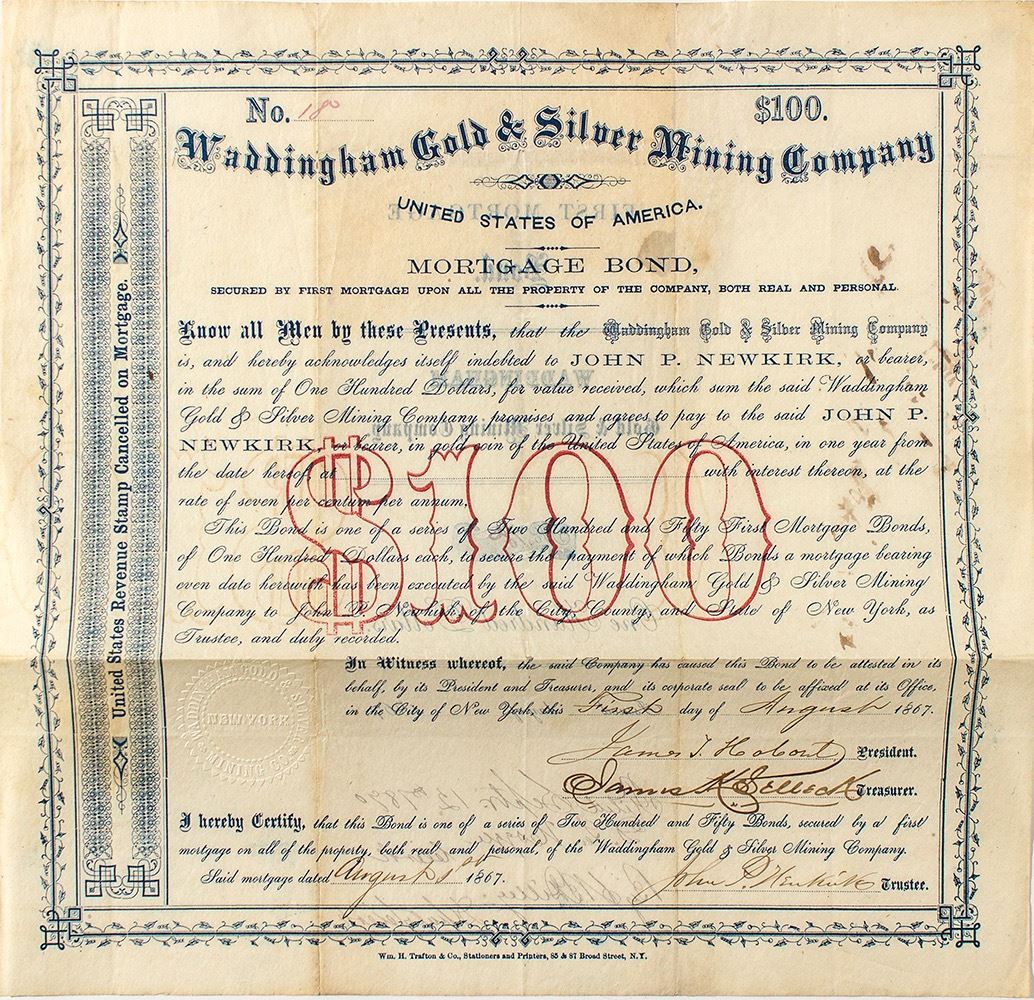 No. 18 $100.
Waddingham Gold & Silver Mining Company
UNITED STATES OF AMERICA.
MORTGAGE BOND,
SECURED BY FIRST MORTGAGE UPON ALL THE PROPERTY OF THE COMPANY, BOTH REAL AND PERSONAL.
Know all Men by these Presents, that the Waddingham Gold & Silver Mining Company
is, and hereby acknowledges itself indebted to JOHN P. NEWKIRK, or bearer,
in the sum of One Hundred Dollars, for value received, which sum the said Waddingham
Gold & Silver Mining Company promises and agrees to pay to the said JOHN P.
NEWKIRK, or bearer, in gold coin of the United States of America, in one year from
the date hereof, at with interest thereon, at the
rate of seven per centum per annum.
$100
This Bond is one of a series of Two Hundred and Fifty First Mortgage Bonds,
of One Hundred Dollars each, to secure the payment of which Bonds a mortgage bearing
even date herewith has been executed by the said Waddingham Gold & Silver Mining
Company to John P. Newkirk, of the City, County, and State of New York, as
Trustee, and duly recorded.
In Witness whereof, the said Company has caused this Bond to be attested in its
behalf, by its President and Treasurer, and its corporate seal to be affixed at its Office,
in the City of New York, this First day of August 1867.
James T. Hobart President.
James K Selleck Treasurer.
I hereby Certify, that this Bond is one of a series of Two Hundred and Fifty Bonds, secured by a first
mortgage on all of the property, both real and personal, of the Waddingham Gold & Silver Mining Company.
Said mortgage dated August 1st 1867.
John P Newkirk Trustee.
United States Revenue Stamp Cancelled on Mortgage.
NEW YORK
MINING CO.
Wm. H. Trafton & Co., Stationers and Printers, 85 & 87 Broad Street, N.Y.